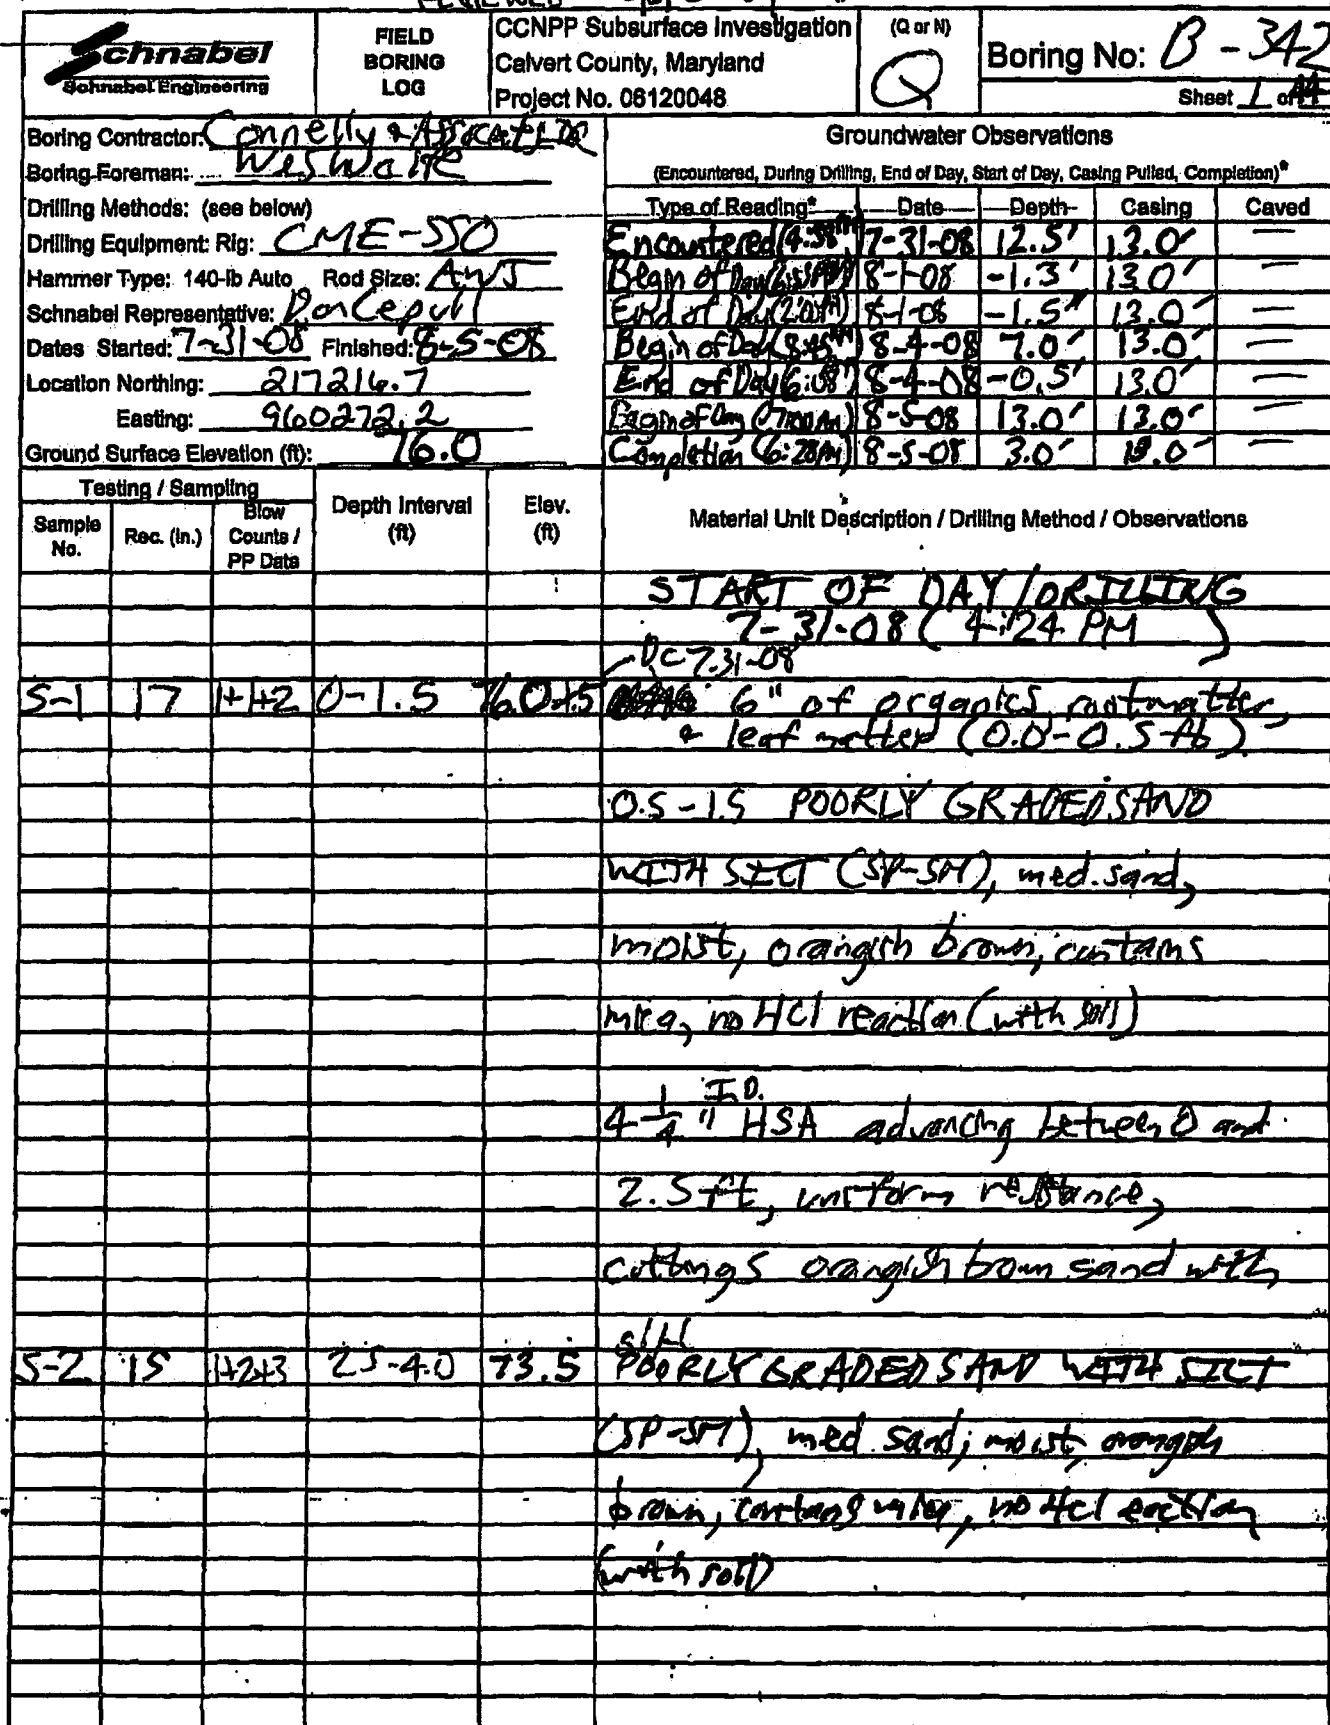 REVIEWED
Schnabel
Schnabel Engineering
FIELD
BORING
LOG
CCNPP Subsurface Investigation
Calvert County, Maryland
Project No. 06120048
(Q or N)
Q
Boring No: B-342
Sheet 1 of
Boring Contractor: Connelly & Associates
Boring Foreman: Wes Waite
Drilling Methods: (see below)
Drilling Equipment: Rig: CME-550
Hammer Type: 140-lb Auto Rod Size: AWJ
Schnabel Representative: Don Cepull
Dates Started: 7-31-08 Finished: 8-5-08
Location Northing: 217216.7
Easting: 960272.2
Ground Surface Elevation (ft): 76.0
Groundwater Observations
(Encountered, During Drilling, End of Day, Start of Day, Casing Pulled, Completion)*
Type of Reading* Date Depth Casing Caved
Encountered (4:58 PM) 7-31-08 12.5' 13.0' —
Begin of Day 8-1-08 -1.3' 13.0' —
End of Day (2:00 PM) 8-1-08 -1.5' 13.0' —
Begin of Day (8:45 AM) 8-4-08 7.0' 13.0' —
End of Day (6:08 PM) 8-4-08 -0.5' 13.0' —
Begin of Day (7:00 AM) 8-5-08 13.0' 13.0' —
Completion (6:28 PM) 8-5-08 3.0' 13.0' —
Testing / Sampling
Sample No. Rec. (in.) Blow Counts / PP Data Depth Interval (ft) Elev. (ft) Material Unit Description / Drilling Method / Observations
START OF DAY / DRILLING
7-31-08 (4:24 PM )
DC 7-31-08
S-1 17 1+1+2 0-1.5 76.0 6" of organics, rootmatter,
& leaf matter (0.0-0.5 ft)
0.5-1.5 POORLY GRADED SAND
WITH SILT (SP-SM), med. sand,
moist, orangish brown, contains
mica, no HCl reaction (with soil)
4-1/4" I.D. HSA advancing between 0 and
2.5 ft, uniform resistance,
cuttings orangish brown sand with
silt
S-2 15 1+2+3 2.5-4.0 73.5 POORLY GRADED SAND WITH SILT
(SP-SM), med. sand; moist, orangish
brown, contains mica, no HCl reaction
(with soil)